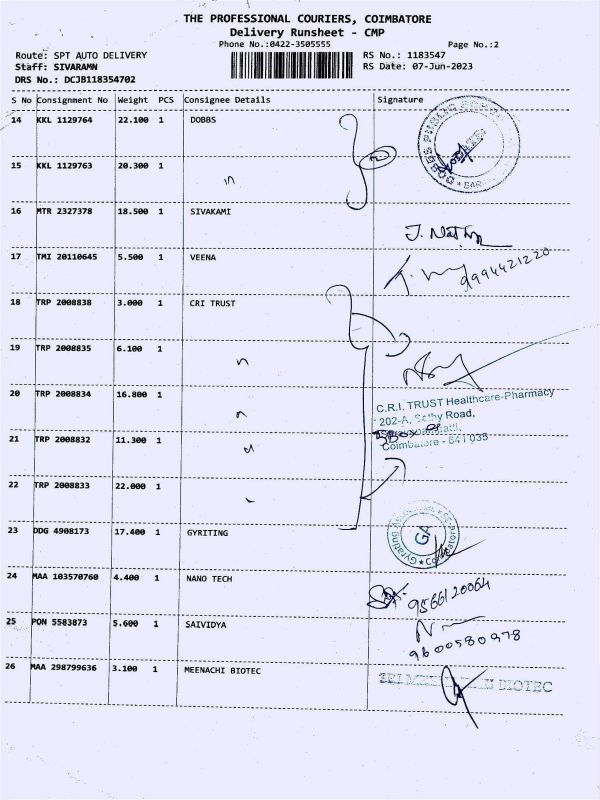 THE PROFESSIONAL COURIERS, COIMBATORE
Delivery Runsheet - CMP
Phone No.:0422-3505555
Page No.:2
Route: SPT AUTO DELIVERY
RS No.: 1183547
Staff: SIVARAMN
RS Date: 07-Jun-2023
DRS No.: DCJB118354702
S No Consignment No Weight PCS Consignee Details Signature
14 KKL 1129764 22.100 1 DOBBS
15 KKL 1129763 20.300 1
16 MTR 2327378 18.500 1 SIVAKAMI
17 TMI 20110645 5.500 1 VEENA
9994421220
18 TRP 2008838 3.000 1 CRI TRUST
19 TRP 2008835 6.100 1
20 TRP 2008834 16.800 1
C.R.I. TRUST Healthcare-Pharmacy
202-A, Sathy Road,
21 TRP 2008832 11.300 1
Coimbatore - 641 035
22 TRP 2008833 22.000 1
23 DDG 4908173 17.400 1 GYRITING
GA
24 MAA 103570760 4.400 1 NANO TECH
9566120064
25 PON 5583873 5.600 1 SAIVIDYA
9600580978
26 MAA 298799636 3.100 1 MEENACHI BIOTEC
BIOTEC